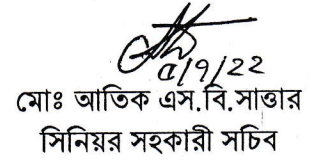 ৫/৭/২২
মোঃ আতিক এস.বি.সাত্তার
সিনিয়র সহকারী সচিব